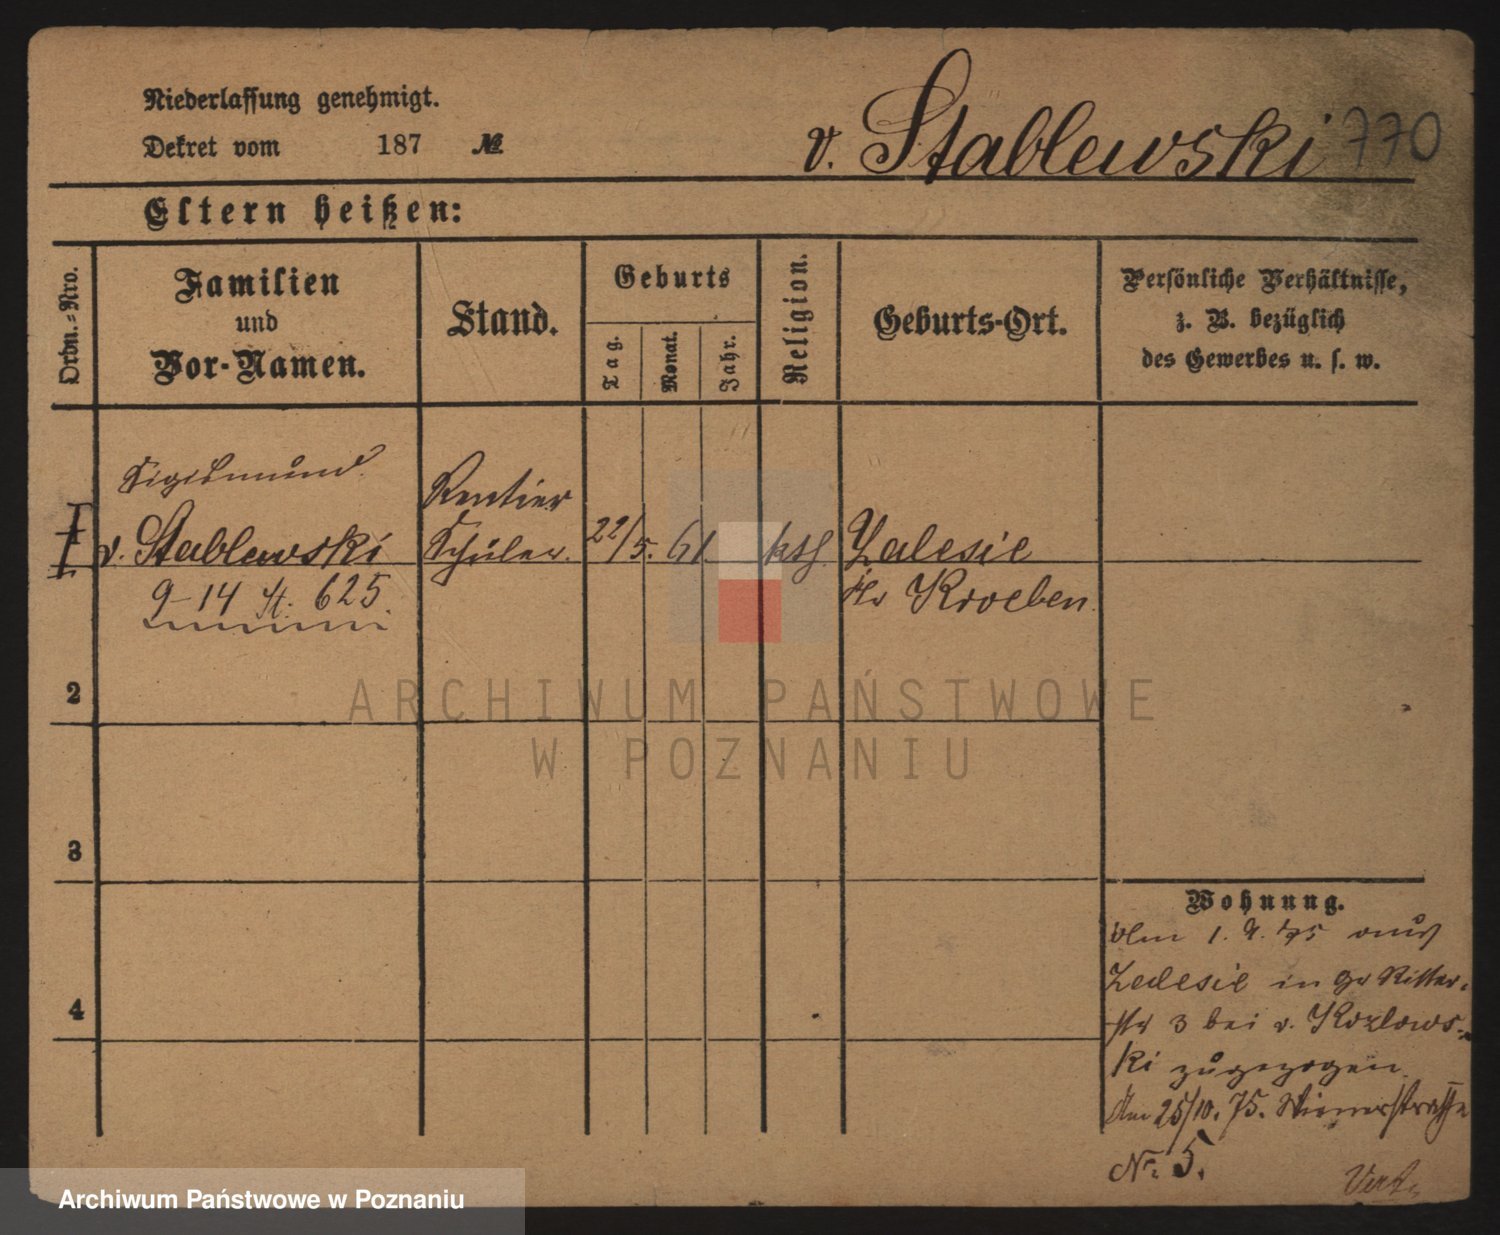 Niederlassung genehmigt.
Dekret vom 187 №
v. Stablewski 770
Eltern heißen:
Ordn.-Nro.
Familien
und
Vor-Namen.
Stand.
Geburts
Tag.
Monat.
Jahr.
Religion.
Geburts-Ort.
Persönliche Verhältnisse,
z. B. bezüglich
des Gewerbes u. s. w.
Sigismund
v. Stablewski
9-14 St. 625.
Rentier
Schüler.
22/5. 61
kth.
Zalesie
Kr Kroeben.
2
3
4
Wohnung.
1. 9. 75 aus
Zalesie in Gr Ritter-
str 3 bei v. Kozlows-
ki zugezogen.
Am 25/10. 75. Wienerstrasse
Nr. 5.
Vert
ARCHIWUM PAŃSTWOWE
W POZNANIU
Archiwum Państwowe w Poznaniu